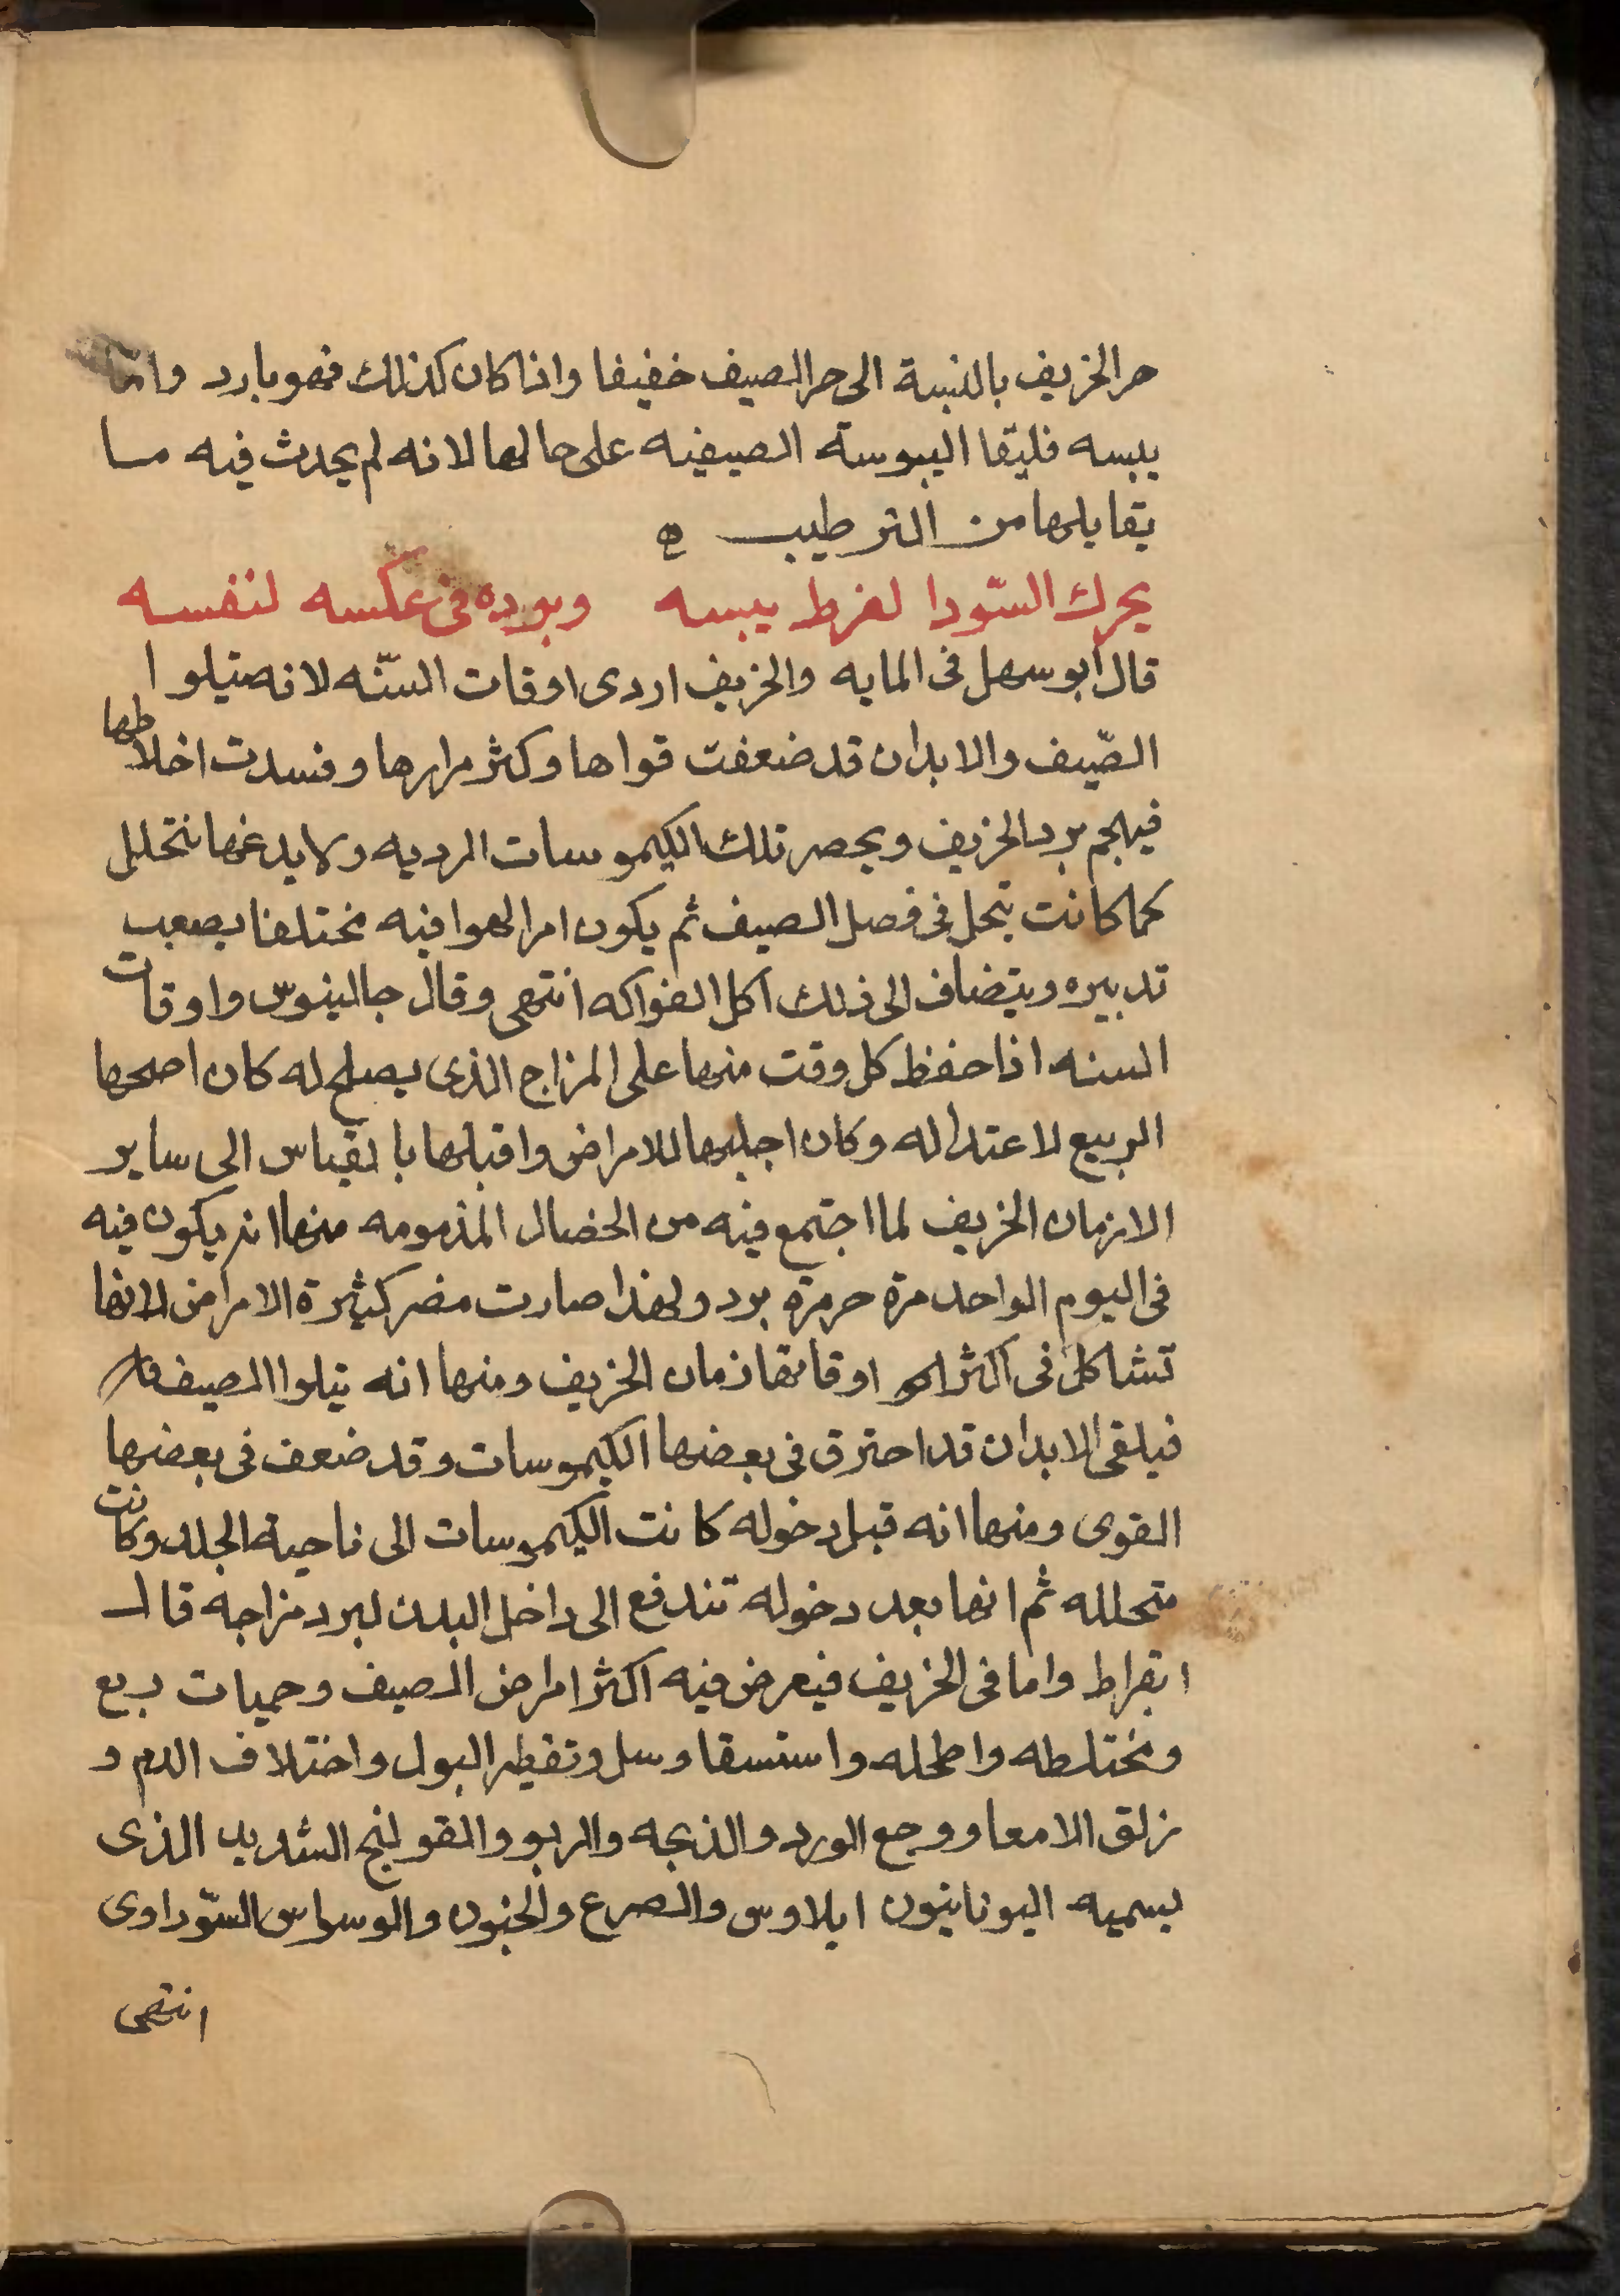 حر الخريف بالنسبة الى حر الصيف خفيفا واذا كان كذلك فهو بارد واما
يبسه فلبقا اليبوسة الصيفيه على حالها لانه لم يحدث فيه ما
يقابلها من الترطيب ه
يحرك السّودا لفرط يبسه وبرده فى عكسه لنفسه
قال ابو سهل فى المايه والخريف اردى اوقات السّنه لانه يتلوا
الصّيف والابدان قد ضعفت قواها وكثر مرارها وفسدت اخلاطها
فيهجم برد الخريف ويحصر تلك الكيموسات الرديه ولا يدعها تتحلل
كما كانت تحل فى فصل الصيف ثم يكون امر الهوا فيه مختلفا يصعب
تدبيره ويتضاف الى ذلك اكل الفواكه انتهى وقال جالينوس واوقات
السنه اذا حفظ كل وقت منها على المزاج الذى يصلح له كان اصحها
الربيع لاعتداله وكان اجلبها للامراض واقبلها بالقياس الى ساير
الازمان الخريف لما اجتمع فيه من الخصال المذمومه منها انه يكون فيه
فى اليوم الواحد مرة حر مرة برد ولهذا صارت مصر كثيرة الامراض لانها
تشاكل فى اكثر اوقاتها زمان الخريف ومنها انه يتلوا الصيف
فيلقى الابدان قد احترق فى بعضها الكيموسات وقد ضعف فى بعضها
القوى ومنها انه قبل دخوله كانت الكيموسات الى ناحية الجلد وكانت
متحلله ثم انها بعد دخوله تندفع الى داخل البدن لبرد مزاجه قال
ابقراط واما فى الخريف فيعرض فيه اكثر امراض الصيف وحميات ربع
ومختلطه واطحله واستسقا وسل وتقطير البول واختلاف الدم و
زلق الامعا ووجع الورد والذبحه والربو والقولنج الشديد الذى
يسميه اليونانيون ايلاوس والصرع والجنون والوسواس السّوداوى
انتهى